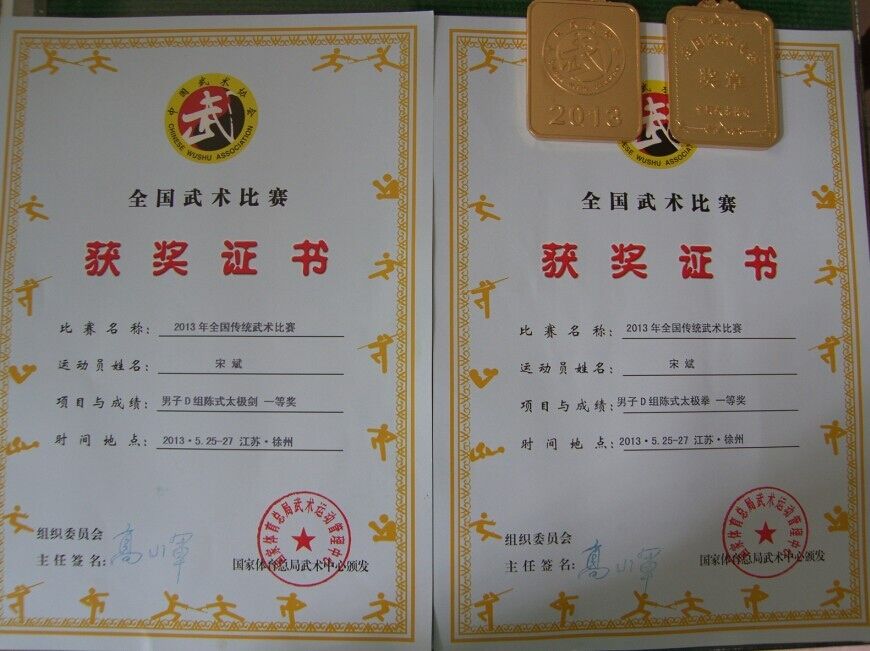 中国武术协会
CHINESE WUSHU ASSOCIATION
全国武术比赛
获奖证书
比赛名称： 2013年全国传统武术比赛
运动员姓名： 宋斌
项目与成绩： 男子D组陈式太极剑 一等奖
时间地点： 2013·5.25-27 江苏·徐州
组织委员会
主任签名：
国家体育总局武术运动管理中心
国家体育总局武术中心颁发
武
2013
奖章
CHINESE WUSHU ASSOCIATION
全国武术比赛
获奖证书
比赛名称： 2013年全国传统武术比赛
运动员姓名： 宋斌
项目与成绩： 男子D组陈式太极拳 一等奖
时间地点： 2013·5.25-27 江苏·徐州
组织委员会
主任签名：
国家体育总局武术运动管理中心
国家体育总局武术中心颁发